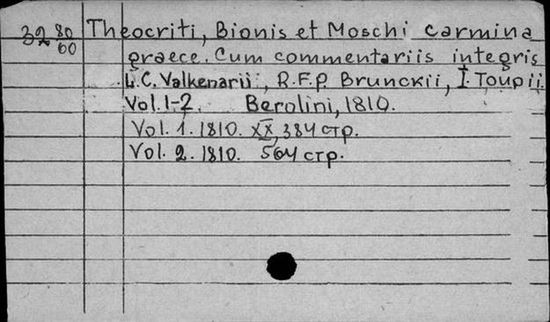 39 80/60 Theocriti, Bionis et Moschi carmina
graece. Cum commentariis integris
L.C. Valkenarii, R.F.P. Brunckii, I. Toupii.
Vol. 1-2. Berolini, 1810.
Vol. 1. 1810. XX, 384 стр.
Vol. 2. 1810. 564 стр.